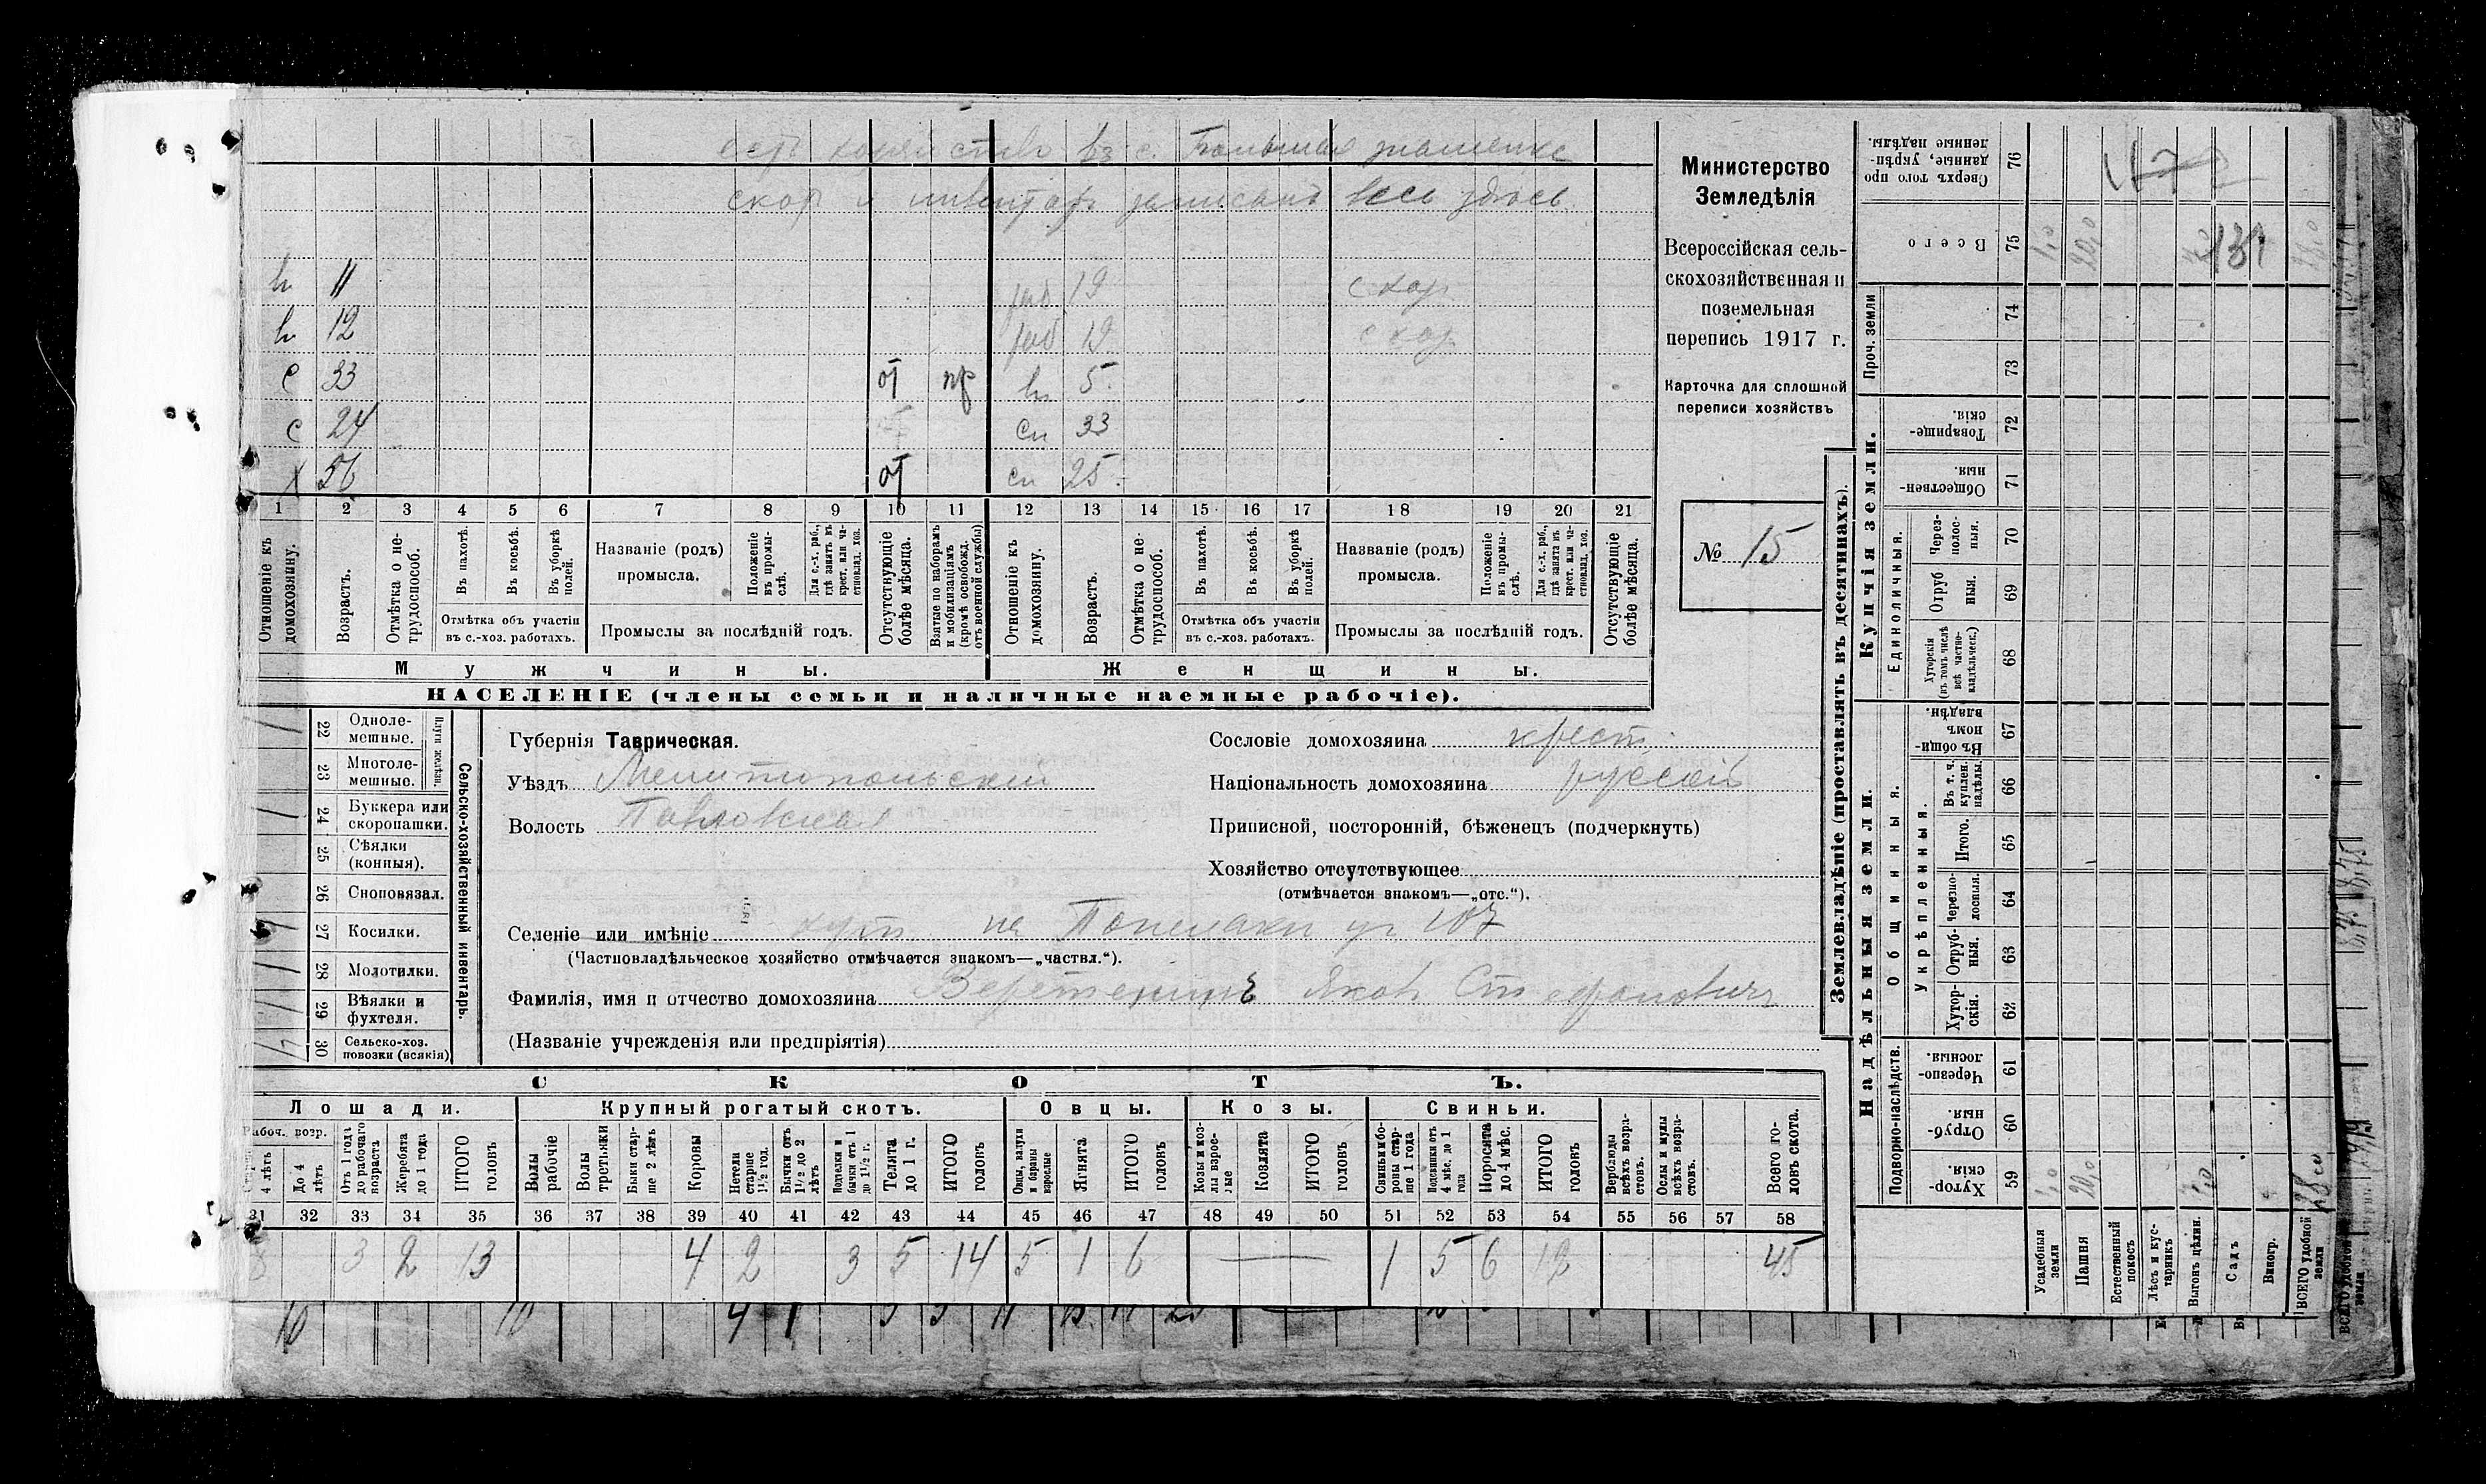 въ с. Большая Знаменка
скот и инвентарь записанъ весь здѣсь
вн 11 раб 19
вн 12 раб 19
с 33 от пр вн 5
с 24 сн 33
х 56 от сн 25
1 2 3 4 5 6 7 8 9 10 11 12 13 14 15 16 17 18 19 20 21
Отношеніе къ домохозяину.
Возрастъ.
Отмѣтка о нетрудоспособ.
Въ пахотѣ.
Въ косьбѣ.
Въ уборкѣ полей.
Отмѣтка объ участіи въ с.-хоз. работахъ.
Названіе (родъ) промысла.
Положеніе въ промыслѣ.
Для с.-х. раб., гдѣ занятъ въ крест. или частновлад. хоз.
Промыслы за послѣдній годъ.
Отсутствующіе болѣе мѣсяца.
Взятые по наборамъ и мобилизаціямъ (кромѣ освобожд. отъ военной службы)
Отношеніе къ домохозяину.
Возрастъ.
Отмѣтка о нетрудоспособ.
Въ пахотѣ.
Въ косьбѣ.
Въ уборкѣ полей.
Отмѣтка объ участіи въ с.-хоз. работахъ.
Названіе (родъ) промысла.
Положеніе въ промыслѣ.
Для с.-х. раб., гдѣ занята въ крест. или частновлад. хоз.
Промыслы за послѣдній годъ.
Отсутствующіе болѣе мѣсяца.
Мужчины. Женщины.
НАСЕЛЕНІЕ (члены семьи и наличные наемные рабочіе).
Министерство
Земледѣлія
Всероссійская сель-
скохозяйственная и
поземельная
перепись 1917 г.
Карточка для сплошной
переписи хозяйствъ
№ 15
22 Однолемешные.
23 Многолемешные.
Плуги желѣзн.
24 Буккера или скоропашки.
25 Сѣялки (конныя).
26 Сноповязал.
27 Косилки.
28 Молотилки.
29 Вѣялки и фухтеля.
30 Сельско-хоз. повозки (всякія)
Сельско-хозяйственный инвентарь.
Губернія Таврическая.
Уѣздъ Мелитопольскій
Волость Павловская
Сословіе домохозяина крест.
Національность домохозяина русскій
Приписной, посторонній, бѣженецъ (подчеркнуть)
Хозяйство отсутствующее
(отмѣчается знакомъ—„отс.“).
Селеніе или имѣніе хут на уч 107
(Частновладѣльческое хозяйство отмѣчается знакомъ—„частвл.“).
Фамилія, имя и отчество домохозяина Яковъ Стефановичъ
(Названіе учрежденія или предпріятія)
СКОТЪ.
Лошади. Крупный рогатый скотъ. Овцы. Козы. Свиньи.
Рабоч. возр.
4 лѣтъ
До 4 лѣтъ
Отъ 1 года до рабочаго возраста
Жеребята до 1 года
ИТОГО головъ
Волы рабочіе
Волы третьяки
Быки старше 2 лѣтъ
Коровы
Нетели старше 1½ год.
Бычки отъ 1½ до 2 лѣтъ
Подтелки и бычки отъ 1 до 1½ г.
Телята до 1 г.
ИТОГО головъ
Овцы, валухи и бараны взрослые
Ягнята
ИТОГО головъ
Козы и козлы взрослые
Козлята
ИТОГО головъ
Свиньи и боровы старше 1 года
Подсвинки отъ 4 мѣс. до 1 года
Поросята до 4 мѣс.
ИТОГО головъ
Верблюды всѣхъ возрастовъ.
Ослы и мулы всѣхъ возрастовъ.
Всего головъ скота.
31 32 33 34 35 36 37 38 39 40 41 42 43 44 45 46 47 48 49 50 51 52 53 54 55 56 57 58
8 3 2 13 4 2 3 5 14 5 1 6 — 1 5 6 12 45
Землевладѣніе (проставлять въ десятинахъ).
Надѣльныя земли. Купчія земли. Проч. земли
Подворно-наслѣдств.
Общинныя.
Укрѣпленныя.
Единоличныя.
76 Сверхъ того проданные, укрѣпленные надѣлы.
75 Всего 1,0 20,0 131
74
73
72 Товарищескія.
71 Общественныя.
70 Черезполосныя.
69 Отрубныя.
68 Хуторскія (въ томъ числѣ всѣ частновладѣльческ.)
67 Въ общинномъ владѣн.
66 Въ т. ч. куплен. надѣлы.
65 Итого.
64 Черезполосныя.
63 Отрубныя.
62 Хуторскія.
61 Черезполосныя.
60 Отрубныя.
59 Хуторскія. 1,0 20,0
Усадебныя земли
Пашня
Естественный покосъ
Лѣсъ и кустарникъ
Выгонъ цѣлин.
Садъ
Виногр.
ВСЕГО удобной земли